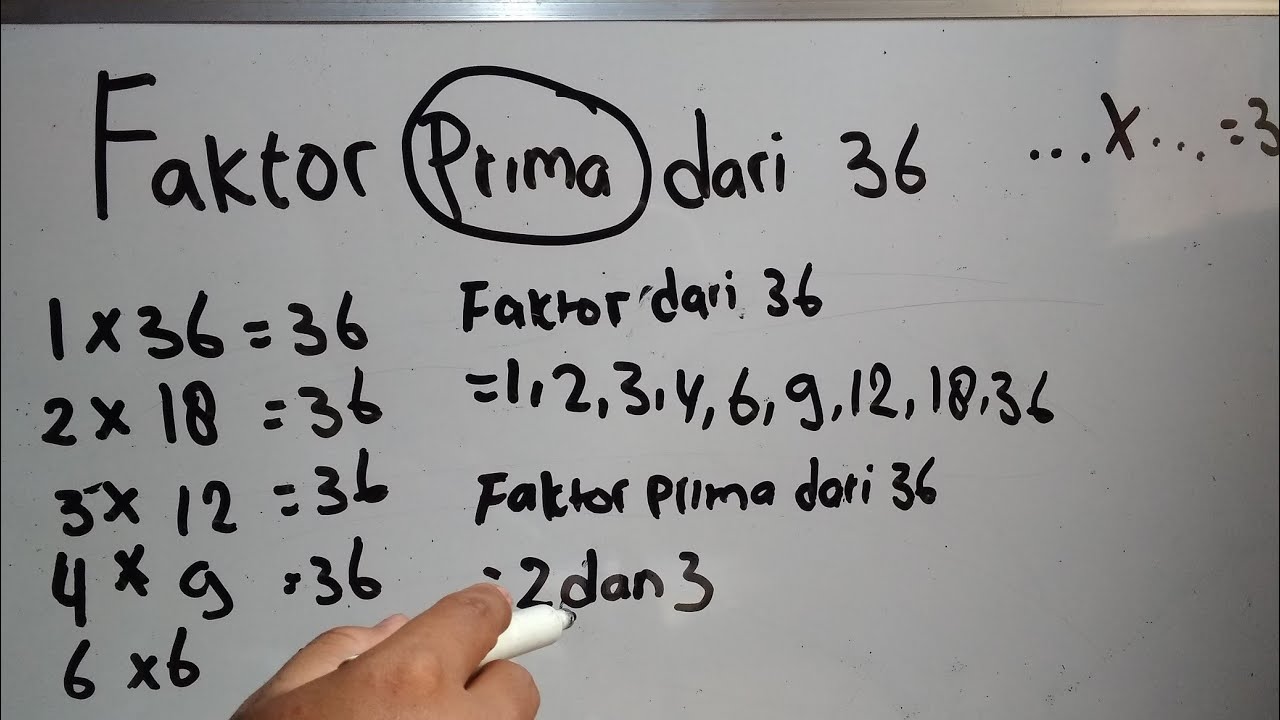 Faktor Prima dari 36
... X ... = 3
1 x 36 = 36
2 x 18 = 36
3 x 12 = 36
4 x 9 = 36
6 x 6
Faktor dari 36
= 1, 2, 3, 4, 6, 9, 12, 18, 36
Faktor prima dari 36
= 2 dan 3